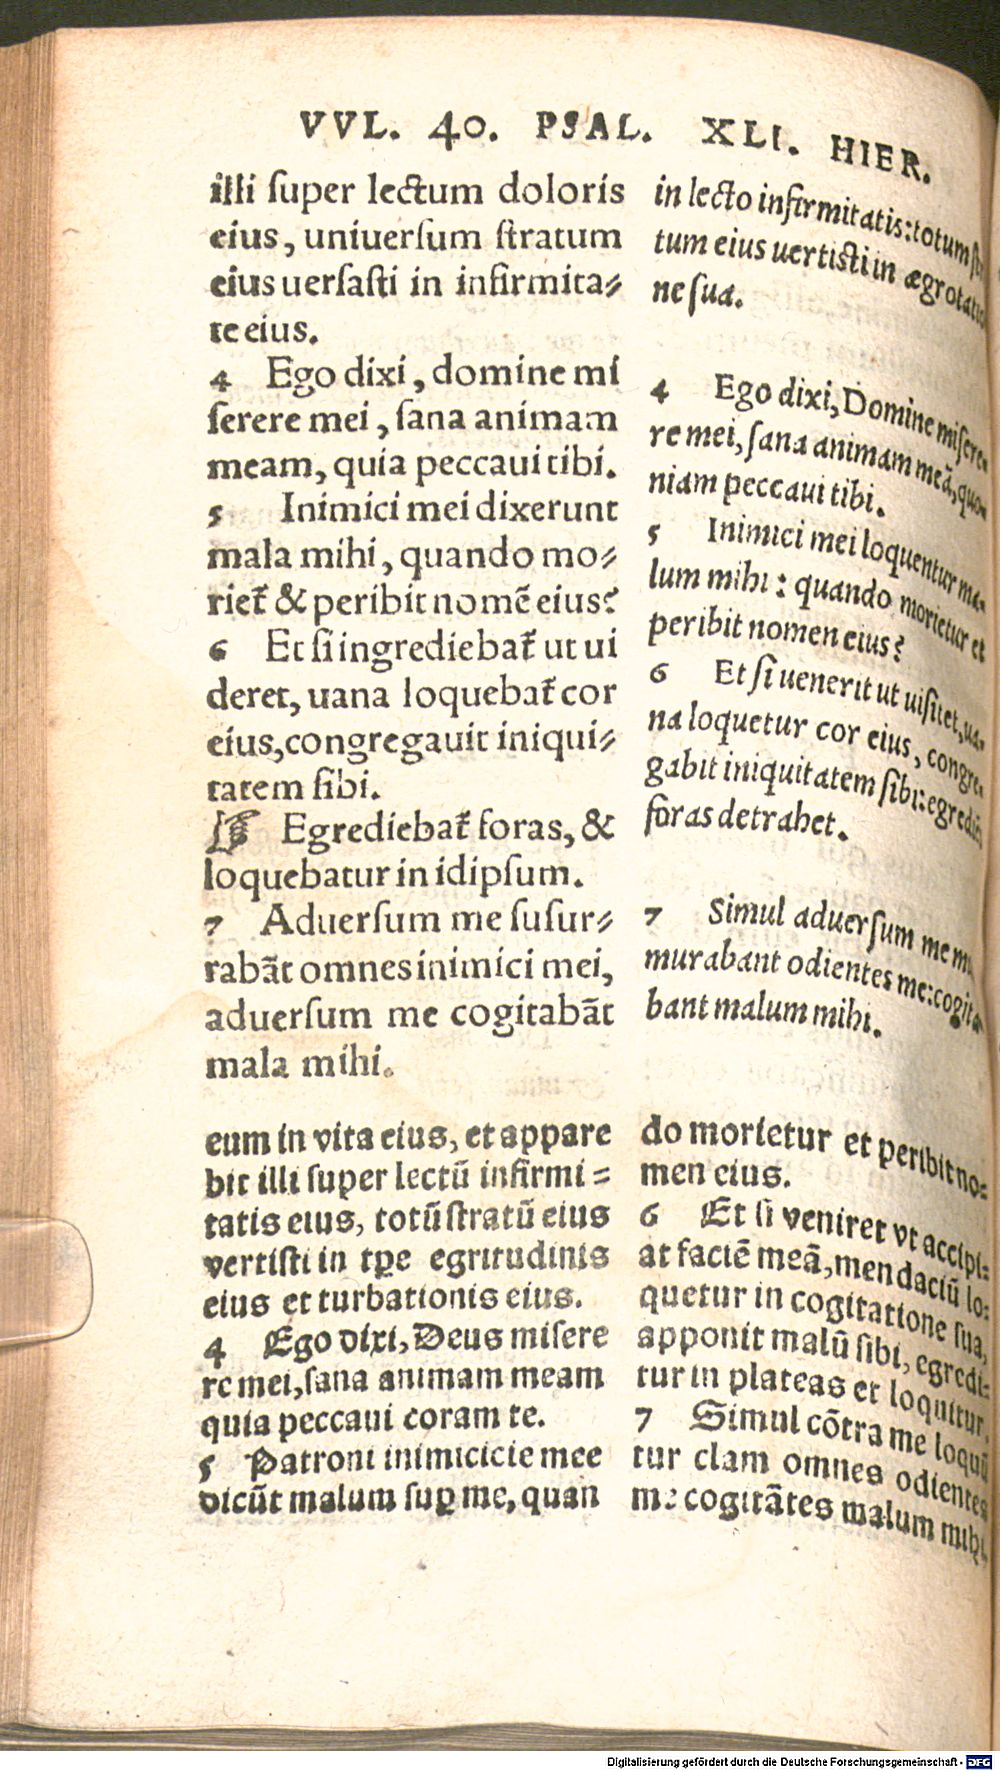 VVL. 40. PSAL. XLI. HIER.
illi ſuper lectum doloris
eius, uniuerſum ſtratum
eius uerſaſti in infirmita⸗
te eius.
4 Ego dixi, domine mi
ſerere mei, ſana animam
meam, quia peccaui tibi.
5 Inimici mei dixerunt
mala mihi, quando mo⸗
riet᷑ & peribit nomẽ eius?
6 Et ſi ingrediebat᷑ ut ui
deret, uana loquebat᷑ cor
eius, congregauit iniqui⸗
tatem ſibi.
☞ Egrediebat᷑ foras, &
loquebatur in idipſum.
7 Aduerſum me ſuſur⸗
rabãt omnes inimici mei,
aduerſum me cogitabãt
mala mihi.
in lecto infirmitatis: totum
tum eius uertiſti in
ne ſua.
4 Ego dixi, Domine miſere⸗
re mei, ſana animam meã, quo⸗
niam peccaui tibi.
5 Inimici mei loquentur ma⸗
lum mihi: quando morietur et
peribit nomen eius?
6 Et ſi uenerit ut uiſitet, ua⸗
na loquetur cor eius, congre⸗
gabit iniquitatem ſibi: 
foras detrahet.
7 Simul aduerſum me
murabant odientes me: 
bant malum mihi.
eum in vita eius, et appare
bit illi ſuper lectũ infirmi⸗
tatis eius, totũ ſtratũ eius
vertiſti in tꝑe egritudinis
eius et turbationis eius.
4 Ego dixi, Deus miſere
re mei, ſana animam meam
quia peccaui coram te.
5 Patroni inimicicie mee
dicũt malum ſuꝑ me, quan
do morietur et peribit no⸗
men eius.
6 Et ſi veniret vt accipi⸗
at faciẽ meã, mendaciũ lo⸗
quetur in cogitatione ſua,
apponit malũ ſibi, egredi⸗
tur in plateas et loquitur.
7 Simul cõtra me loquũ
tur clam omnes odientes
me cogitãtes malum mihi.
Digitalisierung gefördert durch die Deutsche Forschungsgemeinschaft - DFG